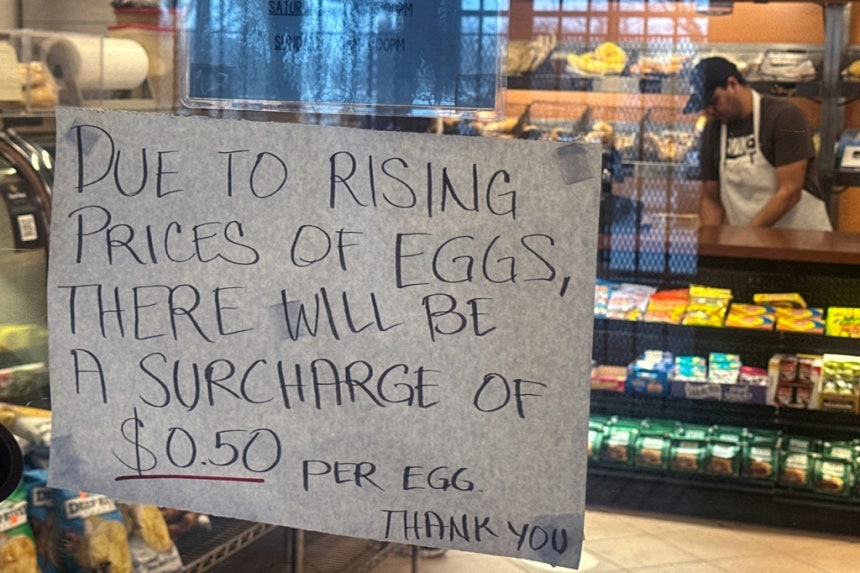 SATUR
SUND
00PM
DUE TO RISING
PRICES OF EGGS,
THERE WILL BE
A SURCHARGE OF
$0.50 PER EGG.
THANK YOU